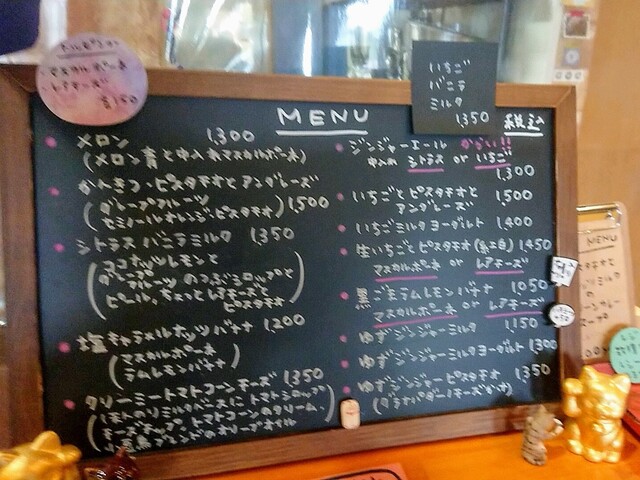 トッピング
・マスカルポーネ
・レアチーズ
各150
いちご
バニラ
ミルク
1,350
MENU
税込
メロン 1,300
(メロン 青と中入れマスカルポーネ)
かんきつ・ピスタチオとアングレーズ
(グレープフルーツ
セミノールオレンジ・ピスタチオ) 1,500
シトラスバニラミルク 1,350
(ココナッツレモンと
グレープフルーツのつぶシロップと
ピール、ちょっとレアチーズと
ピスタチオ)
塩キャラメルナッツバナナ 1,200
(マスカルポーネ
ラムレモンバナナ)
クリーミートマトコーンチーズ 1,350
(トマトのリミルクベースにトマトシロップ
チーズチップ、トマトコーンのクリーム、
黒ブレンドのオリーブオイル)
ジンジャーエール からい!!
中入れ シトラス or いちご
1,300
いちごとピスタチオと 1,500
アングレーズ
いちごミルクヨーグルト 1,400
生いちごとピスタチオ(糸工白) 1,450
マスカルポーネ or レアチーズ
黒ごまラムレモンバナナ 1,050
マスカルポーネ or レアチーズ
ゆずジンジャーミルク 1,150
ゆずジンジャーミルクヨーグルト 1,300
ゆずジンジャーピスタチオ 1,350
MENU